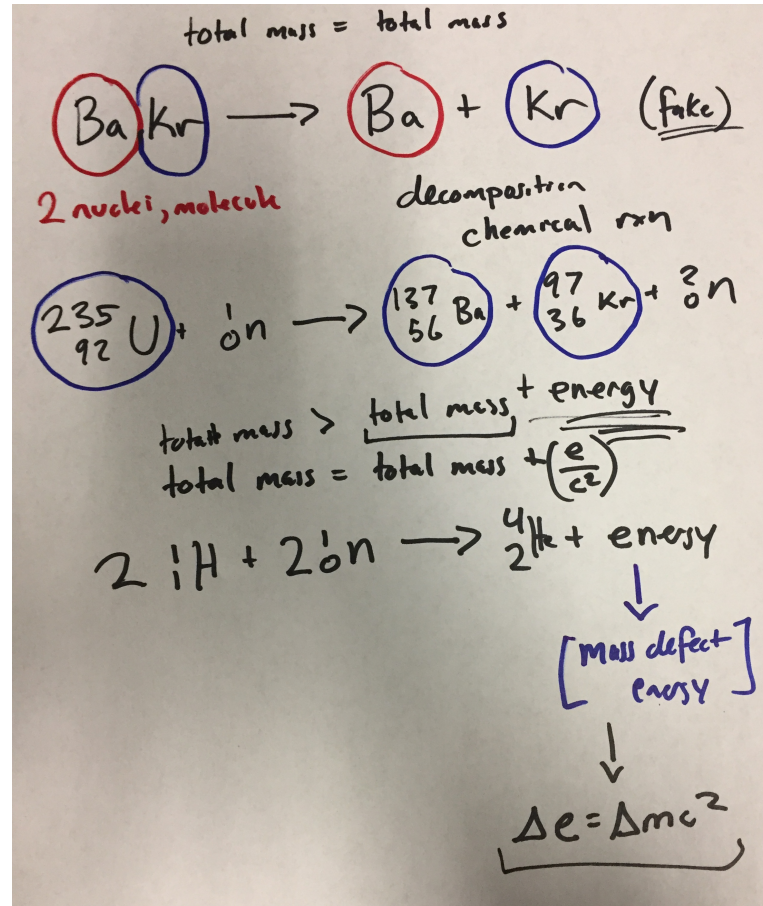 total mass = total mass
Ba Kr → Ba + Kr (fake)
2 nuclei, molecule
decomposition
chemical rxn
²³⁵₉₂U + ¹₀n → ¹³⁷₅₆Ba + ⁹⁷₃₆Kr + ²₀n
total mass > total mass + energy
total mass = total mass + (e/c²)
2 ¹₁H + 2 ¹₀n → ⁴₂He + energy
[mass defect
energy]
Δe = Δmc²